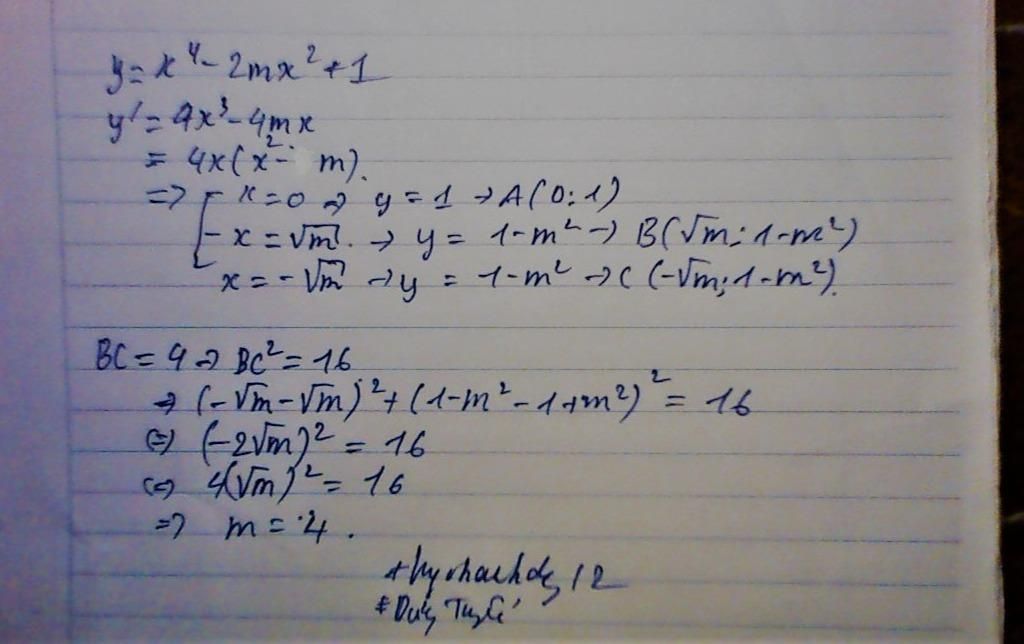 y = x⁴ - 2mx² + 1
y' = 4x³ - 4mx
= 4x(x² - m).
=> [ x = 0 → y = 1 → A(0;1)
- x = √m. → y = 1 - m² → B(√m; 1-m²)
x = -√m → y = 1 - m² → C (-√m; 1-m²).
BC = 4 → BC² = 16
→ (-√m - √m)² + (1 - m² - 1 + m²)² = 16
<=> (-2√m)² = 16
<=> 4(√m)² = 16
=> m = 4.
12